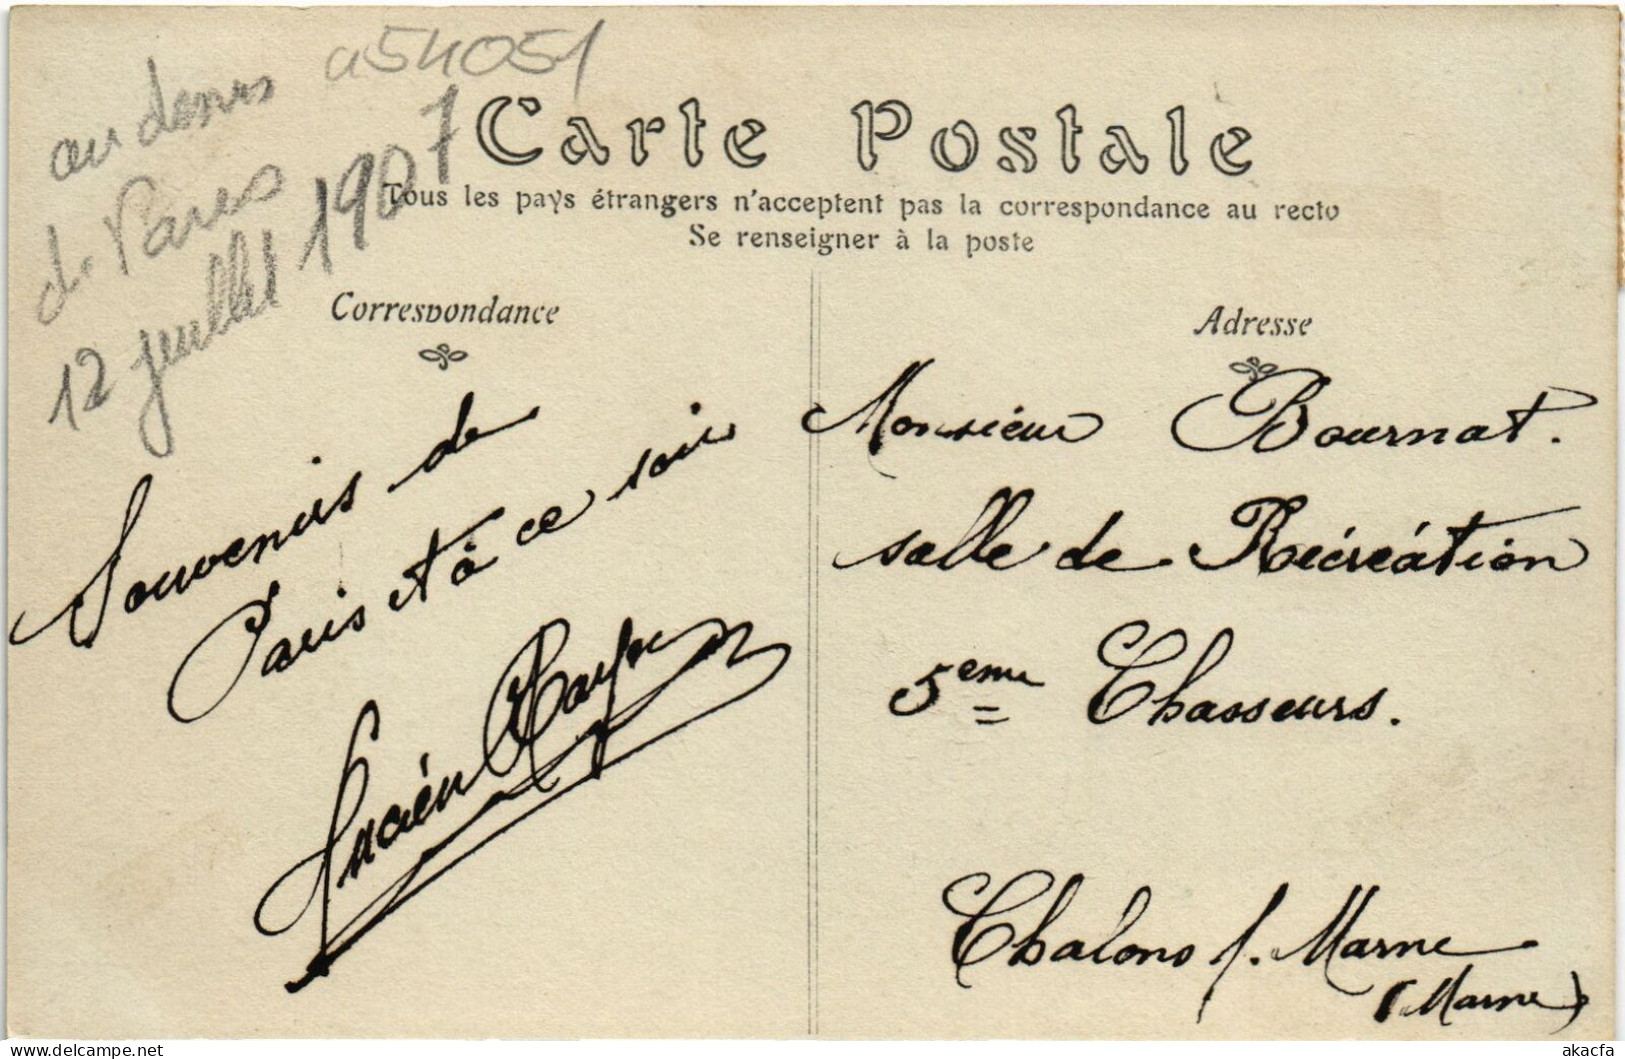 a54051
au dessus
d. Paris
12 juillet 1907
Carte Postale
Tous les pays étrangers n'acceptent pas la correspondance au recto
Se renseigner à la poste
Correspondance
Souvenirs de
Paris et à ce soir
Lucién
Adresse
Monsieur Bournat.
salle de Récréation
5eme Chasseurs.
Chalons s/. Marne
(Marne)
akacfa